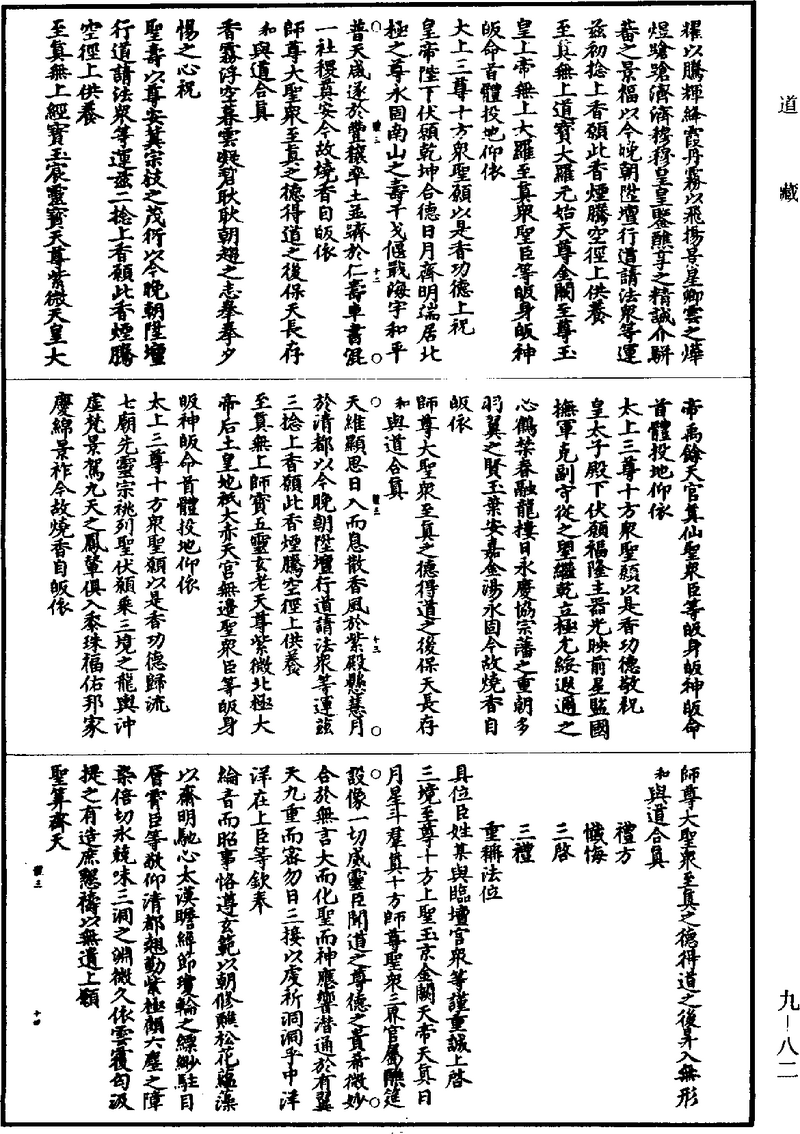 道藏
耀以騰輝絳霞丹霧以飛揚景星卿雲之燁
煜蹌蹌濟濟穆穆皇皇鑒醮享之精誠介駢
蕃之景福以今晚朝陞壇行道請法衆等運
茲初捻上香願此香煙騰空徑上供養
至真無上道寶大羅元始天尊金闕至尊玉
皇上帝無上大羅至真衆聖臣等皈身皈神
皈命首體投地仰依
太上三尊十方衆聖願以是香功德上祝
皇帝陛下伏願乾坤合德日月齊明端居北
極之尊永固南山之壽干戈偃戢海宇和平
普天咸遂於豐穰率土並躋於仁壽車書混
一社稷奠安今故燒香自皈依
師尊大聖衆至真之德得道之後保天長存
和與道合真
香霧浮空暮雲凝碧耿耿朝趨之志拳拳夕
惕之心祝
聖壽以尊安冀宗枝之茂衍以今晚朝陞壇
行道請法衆等運茲二捻上香願此香煙騰
空徑上供養
至真無上經寶玉宸靈寶天尊紫微天皇大
帝禹餘天官真仙聖衆臣等皈身皈神皈命
首體投地仰依
太上三尊十方衆聖願以是香功德敬祝
皇太子殿下伏願福隆主器光映前星監國
撫軍克副守從之望繼乾立極尤綏遐邇之
心鶴禁春融龍樓日永慶協宗藩之重朝多
羽翼之賢玉葉安嘉金湯永固今故燒香自
皈依
師尊大聖衆至真之德得道之後保天長存
和與道合真
天維顯思日入而息散香風於紫殿懸慧月
於清都以今晚朝陞壇行道請法衆等運茲
三捻上香願此香煙騰空徑上供養
至真無上師寶五靈玄老天尊紫微北極大
帝后土皇地祇大赤天官無邊聖衆臣等皈身
皈神皈命首體投地仰依
太上三尊十方衆聖願以是香功德歸流
七廟先靈宗祧列聖伏願乘三境之龍輿沖
虛梵景駕九天之鳳輦俱入黍珠福佑邦家
慶綿景祚今故燒香自皈依
師尊大聖衆至真之德得道之後身入無形
和與道合真
禮方
懺悔
三啓
三禮
重稱法位
具位臣姓某與臨壇官衆等謹重誠上啓
三境至尊十方上聖玉京金闕天帝天真日
月星斗羣真十方師尊聖衆三界官屬醮筵
設像一切威靈臣聞道之尊德之貴希微妙
合於無言大而化聖而神應響潛通於有翼
天九重而密勿日三接以虔祈洞洞乎中洋
洋在上臣等欽奉
綸音而昭事恪遵玄範以朝修雕松花蘊藻
以齋明馳心太漢瞻絳節瓊輪之縹緲駐目
層霄臣等敬仰清都翹勤紫極顧六塵之障
染倍切永兢味三洞之淵微久依雲覆匄汲
提之有造庶懇禱以無遺上願
聖算齊天
九—八二